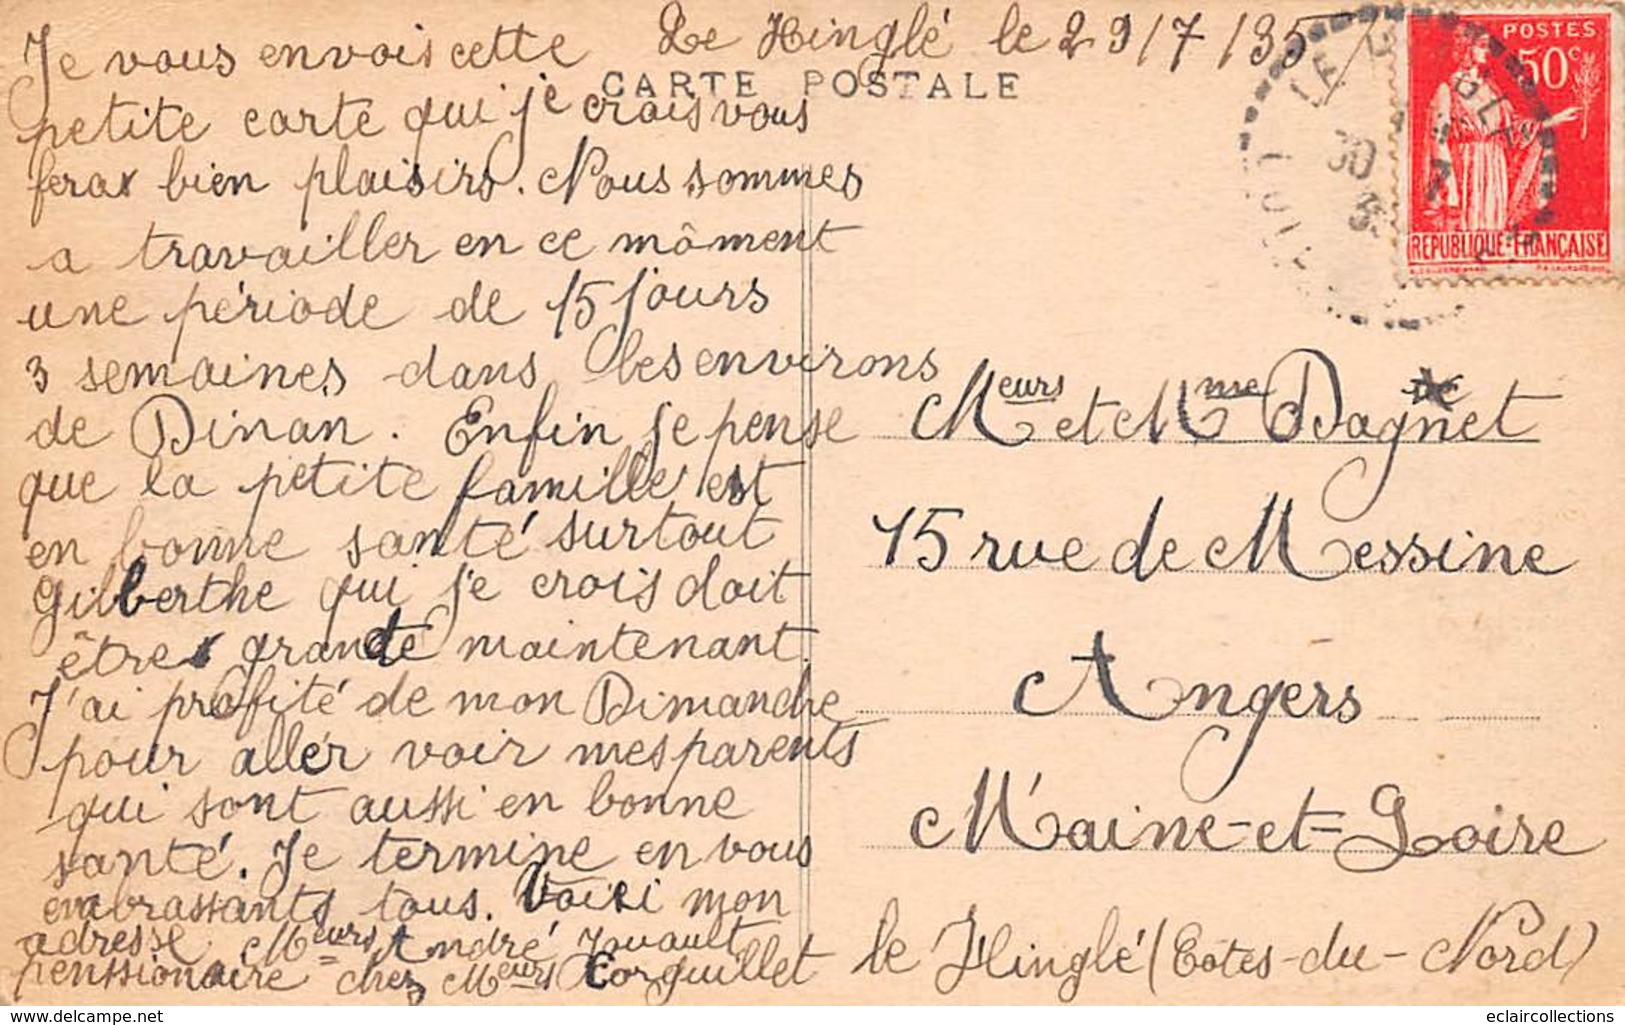 Le Hinglé le 29/7/35
CARTE POSTALE
Je vous envois cette
petite carte qui je crais vous
fera bien plaisirs. Nous sommes
a travailler en ce môment
une période de 15 jours
3 semaines dans les environs
de Dinan. Enfin je pense
que la petite famille est
en bonne santé surtout
Gilberthe qui je crois doit
être grande maintenant.
J'ai profité de mon Dimanche
pour aller voir mes parents
qui sont aussi en bonne
santé. Je termine en vous
embrassants tous. Voici mon
adresse Meurs André
penssionaire chez Meurs Corguillet
POSTES
50c
REPUBLIQUE-FRANÇAISE
Meurs et Mme Dagnet
15 rue de Messine
Angers
Maine-et-Loire
le Hinglé (Cotes-du-Nord)
eclaircollections